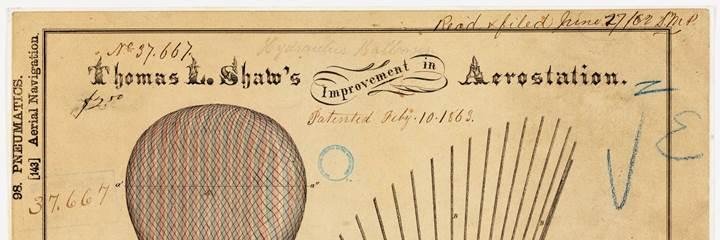 Read & filed June 27/62
No 37.667.
Hydraulic Balloon
Thomas L. Shaw's Improvement in Aerostation.
$2.50
Patented Feby. 10. 1863.
98. PNEUMATICS.
[143] Aerial Navigation.
37.667